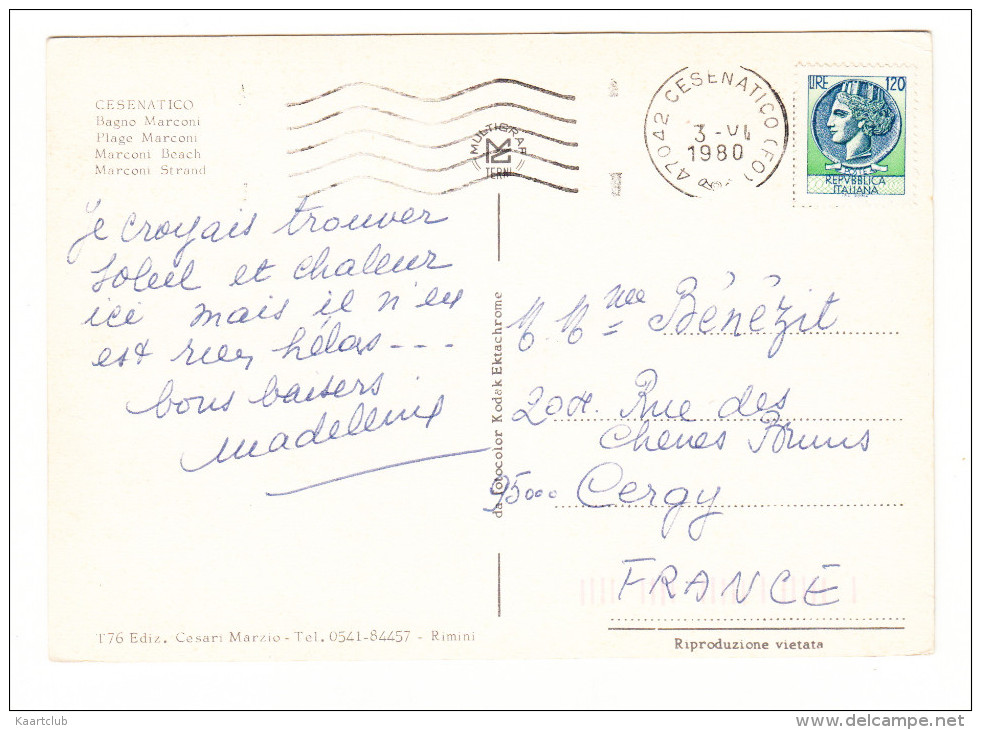 CESENATICO
Bagno Marconi
Plage Marconi
Marconi Beach
Marconi Strand
MULTIGRAF
TERNI
47042 CESENATICO (FO)
3-VI
1980
LIRE 120
POSTE
REPVBBLICA
ITALIANA
Je croyais trouver
soleil et chaleur
ici mais il n'en
est rien, hélas ---
bons baisers
Madeleine
da fotocolor Kodak Ektachrome
M. Mme Bénézit
Rue des
Chenes Bruns
95000 Cergy
FRANCE
T76 Ediz. Cesari Marzio - Tel. 0541-84457 - Rimini
Riproduzione vietata
Kaartclub
www.delcampe.net